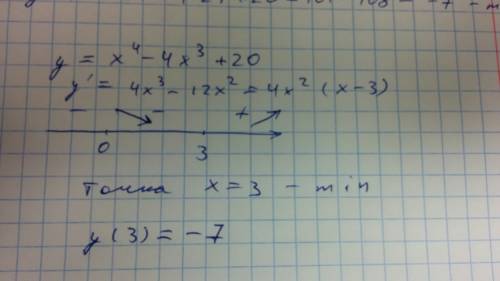 y = x⁴ - 4x³ + 20
y' = 4x³ - 12x² = 4x² (x - 3)
- - +
0 3
Точка x = 3 - min
y(3) = -7